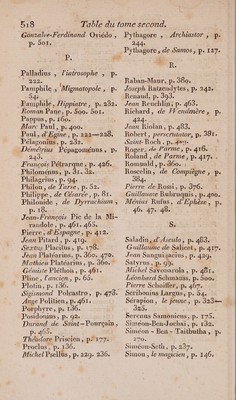 518 Table du tome second.
Gonzalve-Ferdinand Oriédo,
p. 501.
P.
Palladius, l'iatrosophe, p.
222.
Pamphile, Migmatopole, p.
54.
Pamphile, Hippiatre, p. 231.
Roman Pane, p. 500. 501.
Pappus, p. 160.
Marc Paul, p. 400.
Paul, d'Egine, p. 222—228.
Pélagonius, p. 231.
Démétrius Pépagomenus, p.
243.
François Pétrarque, p. 426.
Philomenus, p. 31. 32.
Philagrius, p. 94.
Philon, de Tarse, p. 52.
Philippe, de Césarée, p. 81.
Philonide, de Dyrrachium,
p. 18.
Jean-François Pic de la Mirandole, p. 461. 465.
Pierre, d'Espagne, p. 412.
Jean Pitard, p. 419.
Sextus Placitus, p. 178.
Jean Platéarius, p. 360. 470.
Mathieu Platéarius, p. 360.
Gémiste Pléthon, p. 461.
Pline, l'ancien, p. 65.
Plotin, p. 136.
Sigismond Polcastro, p. 473.
Ange Politien, p. 461.
Porphyre, p. 136.
Posidonius, p. 92.
Durand de Saint-Pourçain,
p. 465.
Théodore Priscien, p. 177.
Proclus, p. 136.
Michel Psellus, p. 229. 236.
Pythagore, Archiastor, p.
244.
Pythagore, de Samos, p. 127.
R.
Raban-Maur, p. 380.
Joseph Ratzendytes, p. 242.
Renaud, p. 393.
Jean Reuchlin, p. 463.
Richard, de Wendmère, p.
424.
Jean Riolan, p. 483.
Robert, perscrutator, p. 381.
Saint-Roch, p.
Roger, de Parme, p. 416.
Roland, de Parme, p. 417.
Romuald, p. 360.
Roscelin, de Compiègne, p.
384.
Pierre de Rossi, p. 376.
Guillaume Rubruquis, p. 400.
Ménius Rufus, d'Ephèse, p.
46. 47. 48.
S.
Saladin, d'Ascolo, p. 483.
Guillaume de Salicet, p. 417.
Jean Sanguinacius, p. 429.
Satyrus, p. 93.
Michel Savonarola, p. 481.
Léonhard Schmauss, p. 500.
Pierre Schoiffer, p. 467.
Scribonius Largus, p. 54.
Sérapion, le jeune, p. 323—
325.
Serenus Samonicus, p. 175.
Siméon-Ben-Jochai, p. 132.
Siméon-Ben-Taitbutha, p.
270.
Siméon-Seth, p. 237.
Simon, le magicien, p. 146.